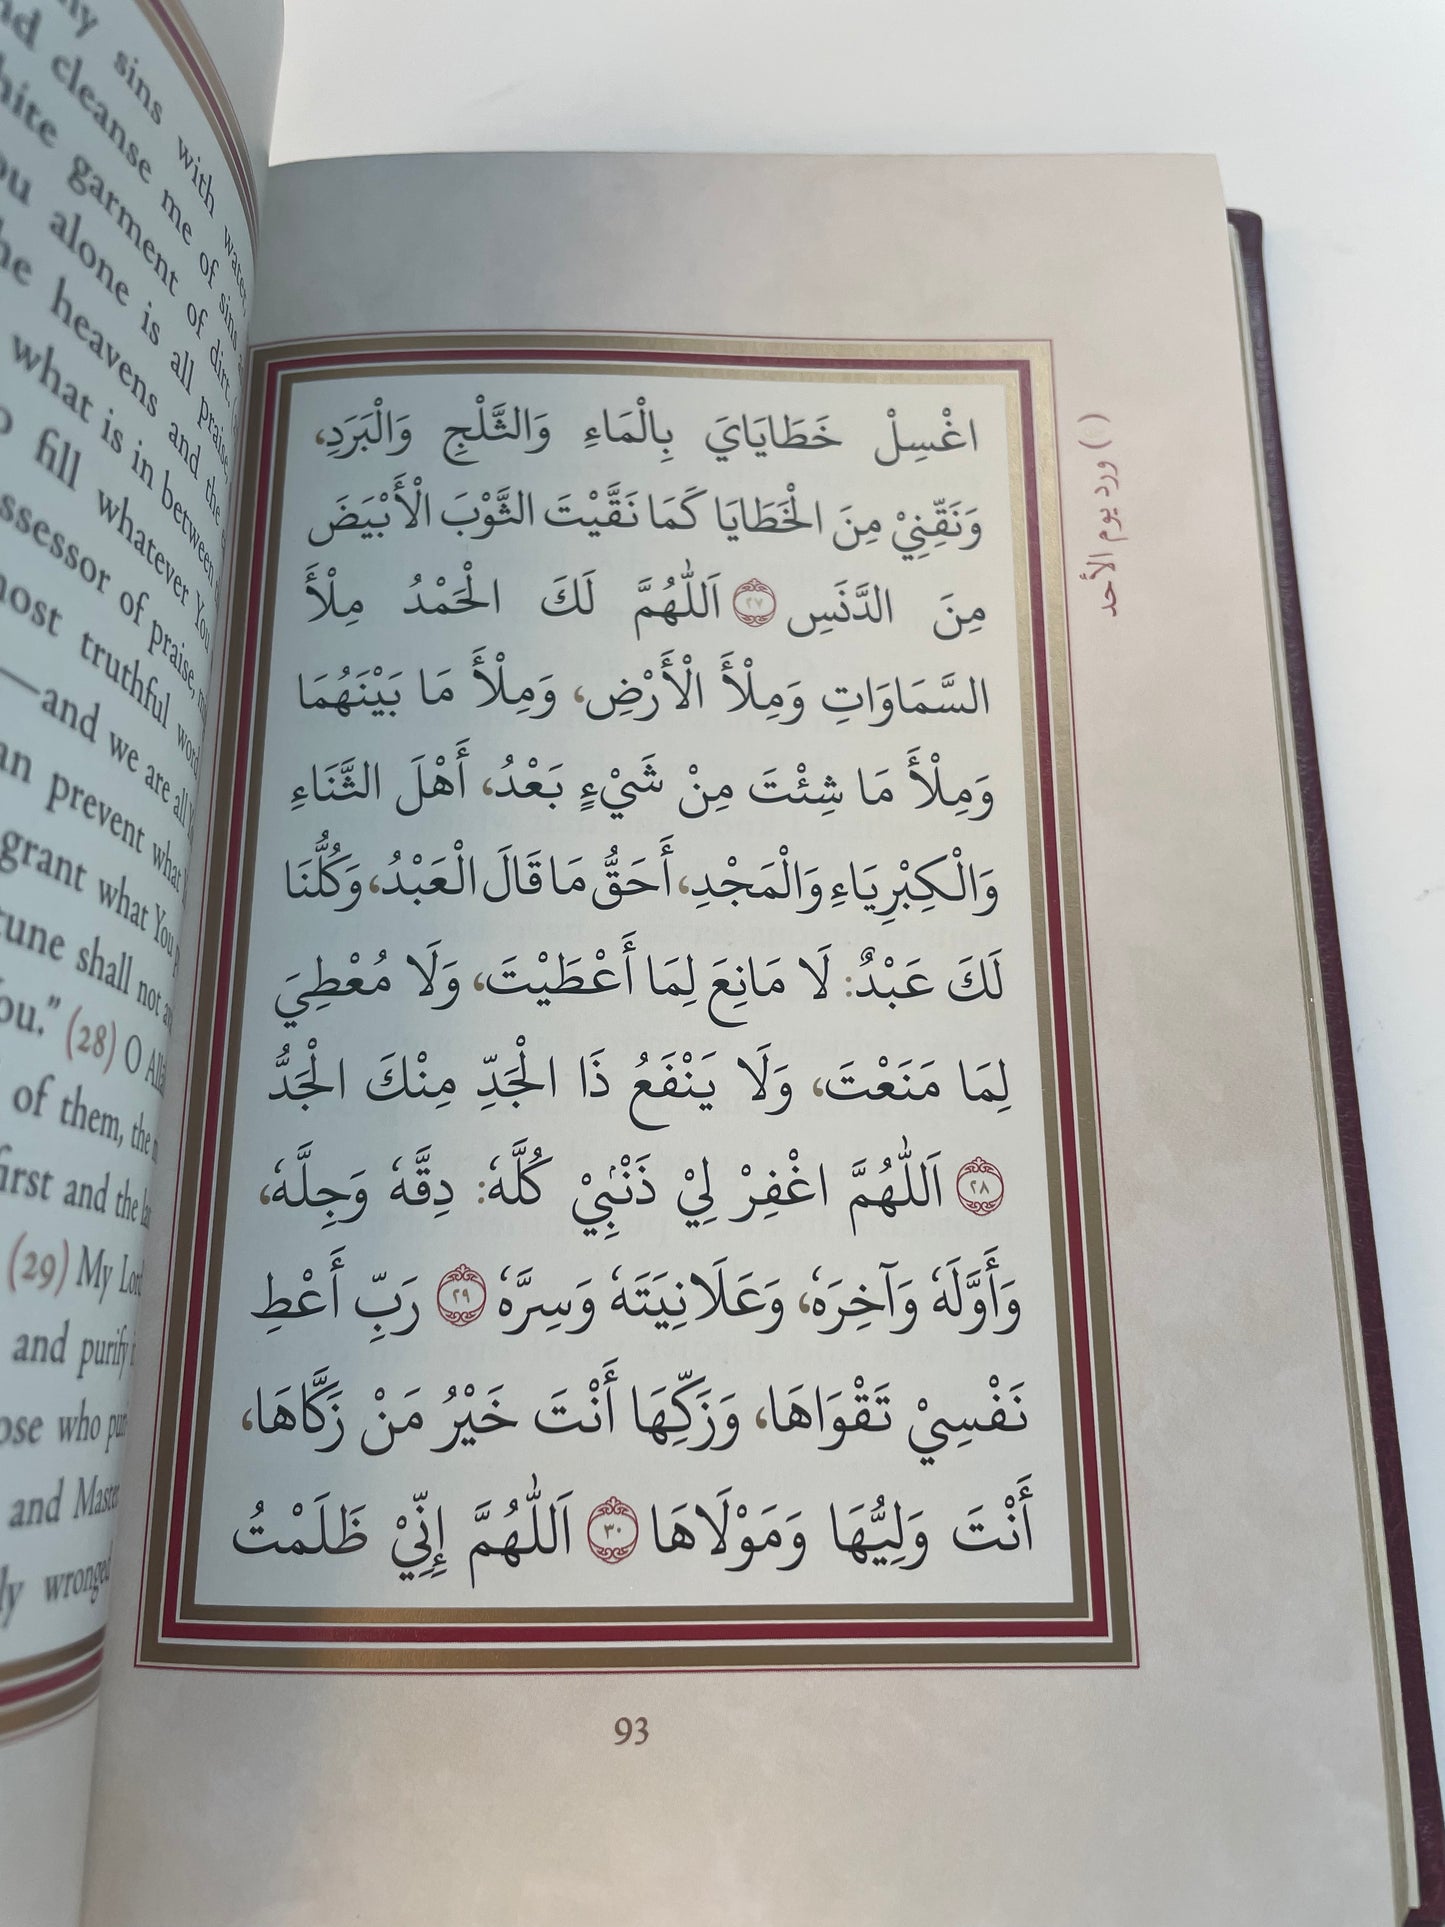 ny sins with water,
nd cleanse me of sins
hite garment of dirt,
ou alone is all praise,
he heavens and the
what is in between
o fill whatever You
ssessor of praise,
most truthful word
—and we are all
an prevent what
grant what You
tune shall not
You." (28) O
of them, the
first and the
(29) My
and purify
ose who
and
ly wronged
اغْسِلْ خَطَايَايَ بِالْمَاءِ وَالثَّلْجِ وَالْبَرَدِ،
وَنَقِّنِيْ مِنَ الْخَطَايَا كَمَا نَقَّيْتَ الثَّوْبَ الْأَبْيَضَ
مِنَ الدَّنَسِ ٢٧ اَللّٰهُمَّ لَكَ الْحَمْدُ مِلْأَ
السَّمَاوَاتِ وَمِلْأَ الْأَرْضِ، وَمِلْأَ مَا بَيْنَهُمَا
وَمِلْأَ مَا شِئْتَ مِنْ شَيْءٍ بَعْدُ، أَهْلَ الثَّنَاءِ
وَالْكِبْرِيَاءِ وَالْمَجْدِ، أَحَقُّ مَا قَالَ الْعَبْدُ، وَكُلُّنَا
لَكَ عَبْدٌ: لَا مَانِعَ لِمَا أَعْطَيْتَ، وَلَا مُعْطِيَ
لِمَا مَنَعْتَ، وَلَا يَنْفَعُ ذَا الْجَدِّ مِنْكَ الْجَدُّ
٢٨ اَللّٰهُمَّ اغْفِرْ لِيْ ذَنْۢبِيْ كُلَّهٗ: دِقَّهٗ وَجِلَّهٗ،
وَأَوَّلَهٗ وَآخِرَهٗ، وَعَلَانِيَتَهٗ وَسِرَّهٗ ٢٩ رَبِّ أَعْطِ
نَفْسِيْ تَقْوَاهَا، وَزَكِّهَا أَنْتَ خَيْرُ مَنْ زَكَّاهَا،
أَنْتَ وَلِيُّهَا وَمَوْلَاهَا ٣٠ اَللّٰهُمَّ إِنِّيْ ظَلَمْتُ
ورد يوم الأحد
93